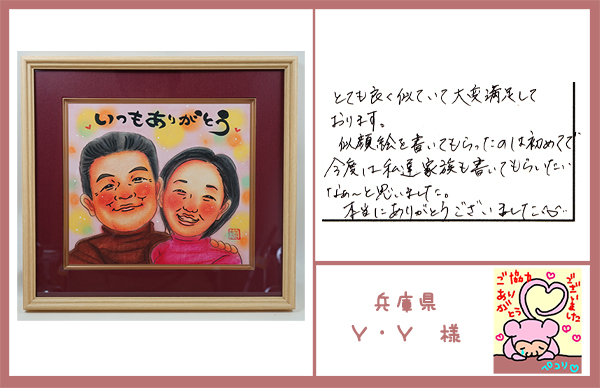 いつもありがとう
とても良く似ていて大変満足して
おります。
似顔絵を書いてもらったのは初めてで
今度は私達家族も書いてもらいたい
なぁ〜と思いました。
本当にありがとうございました
兵庫県
Y・Y 様
ご協力
ありがとう
ございました
ペコリ